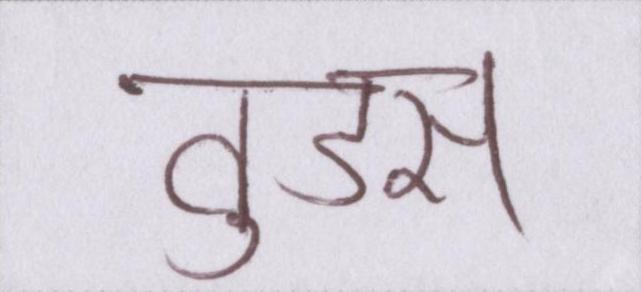 वुडस